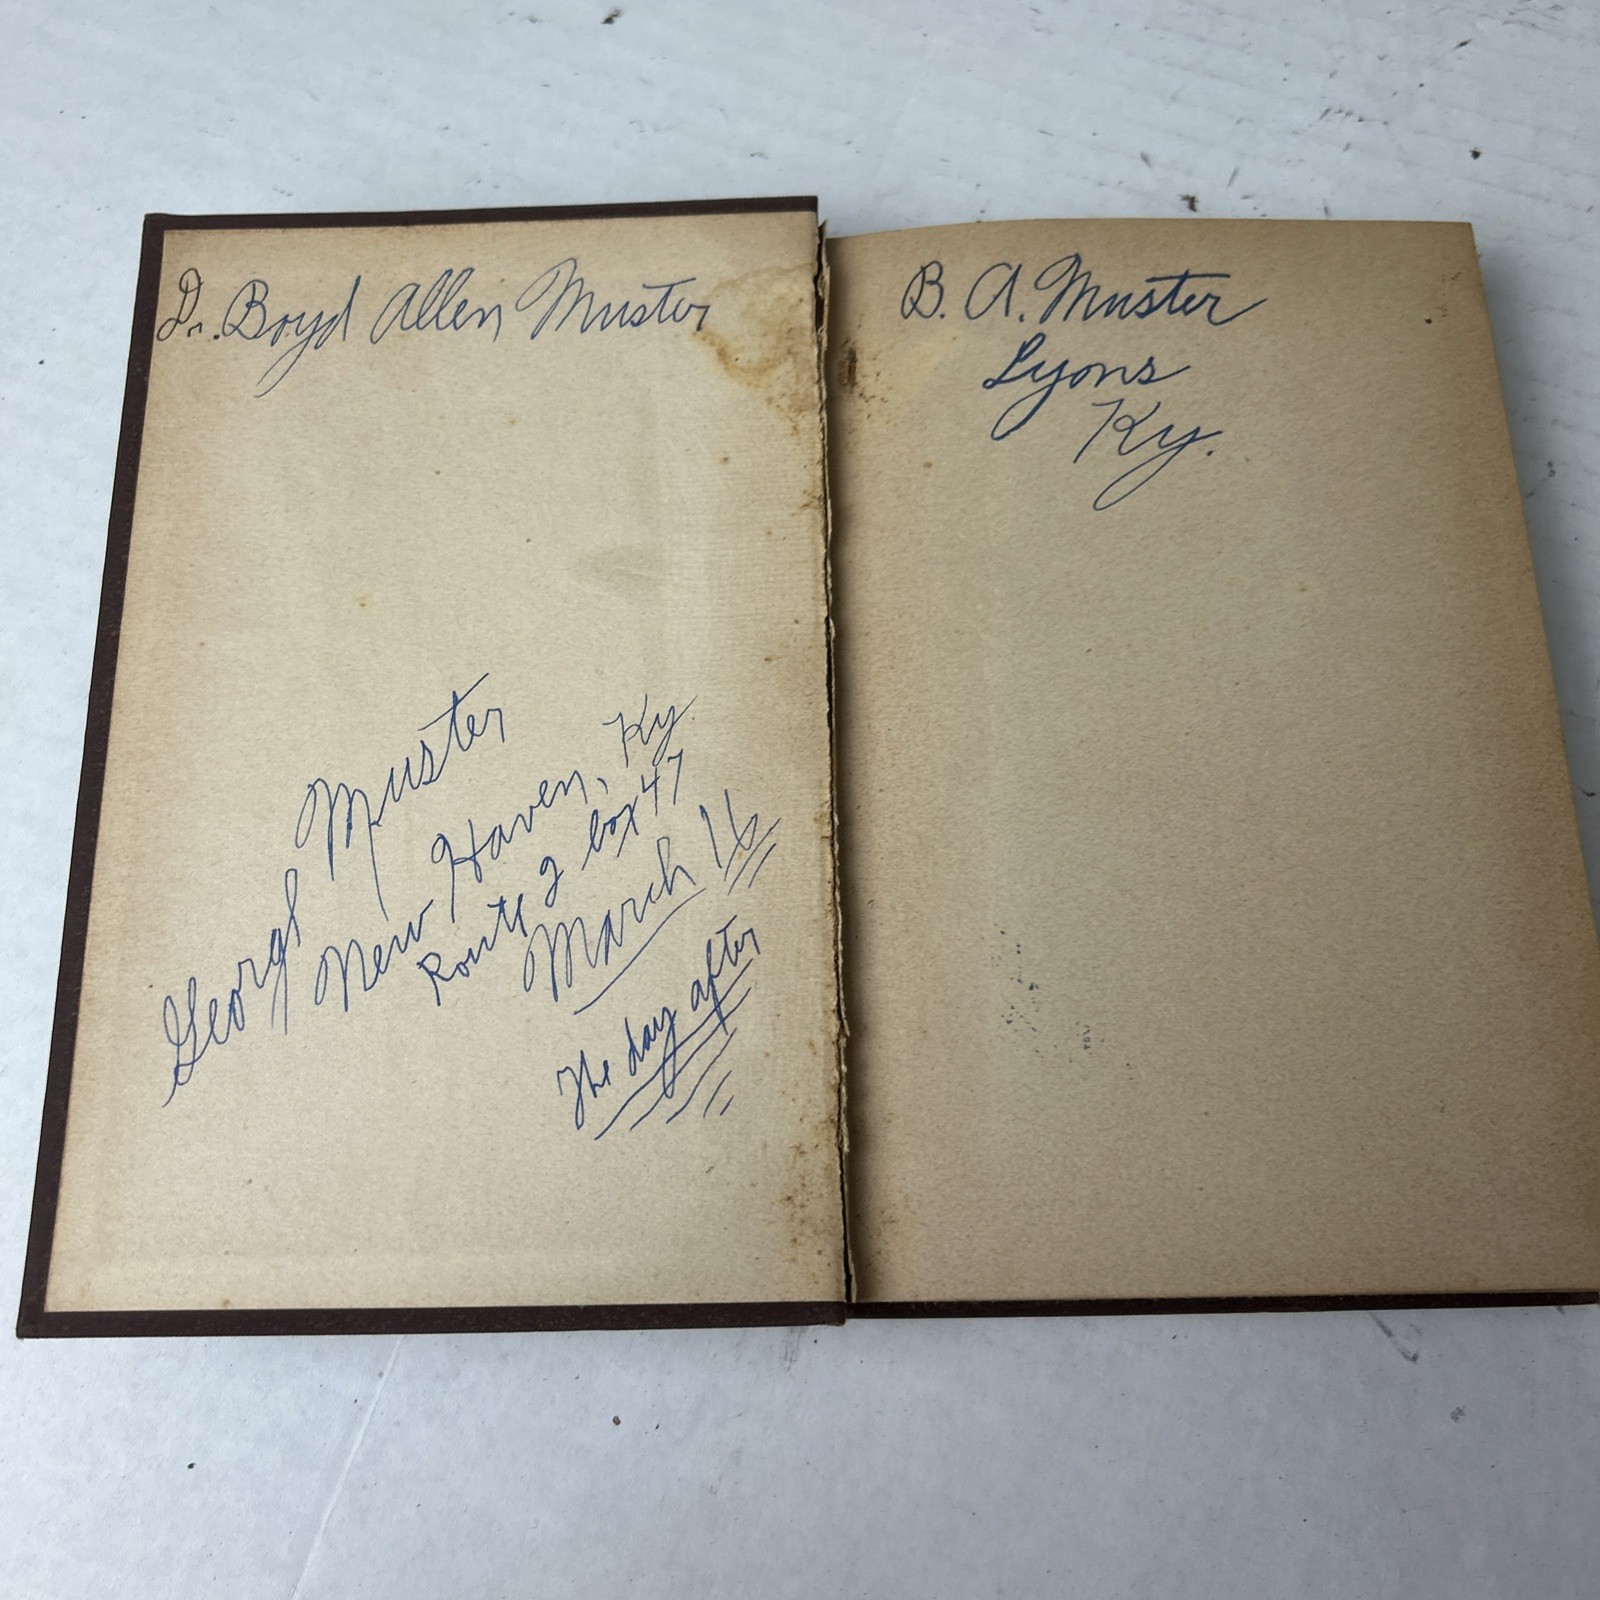 Dr. Boyd Allen Muster
George Muster
New Haven, Ky
Route 2 box 47
March 16
The day after
B. A. Muster
Lyons
Ky.